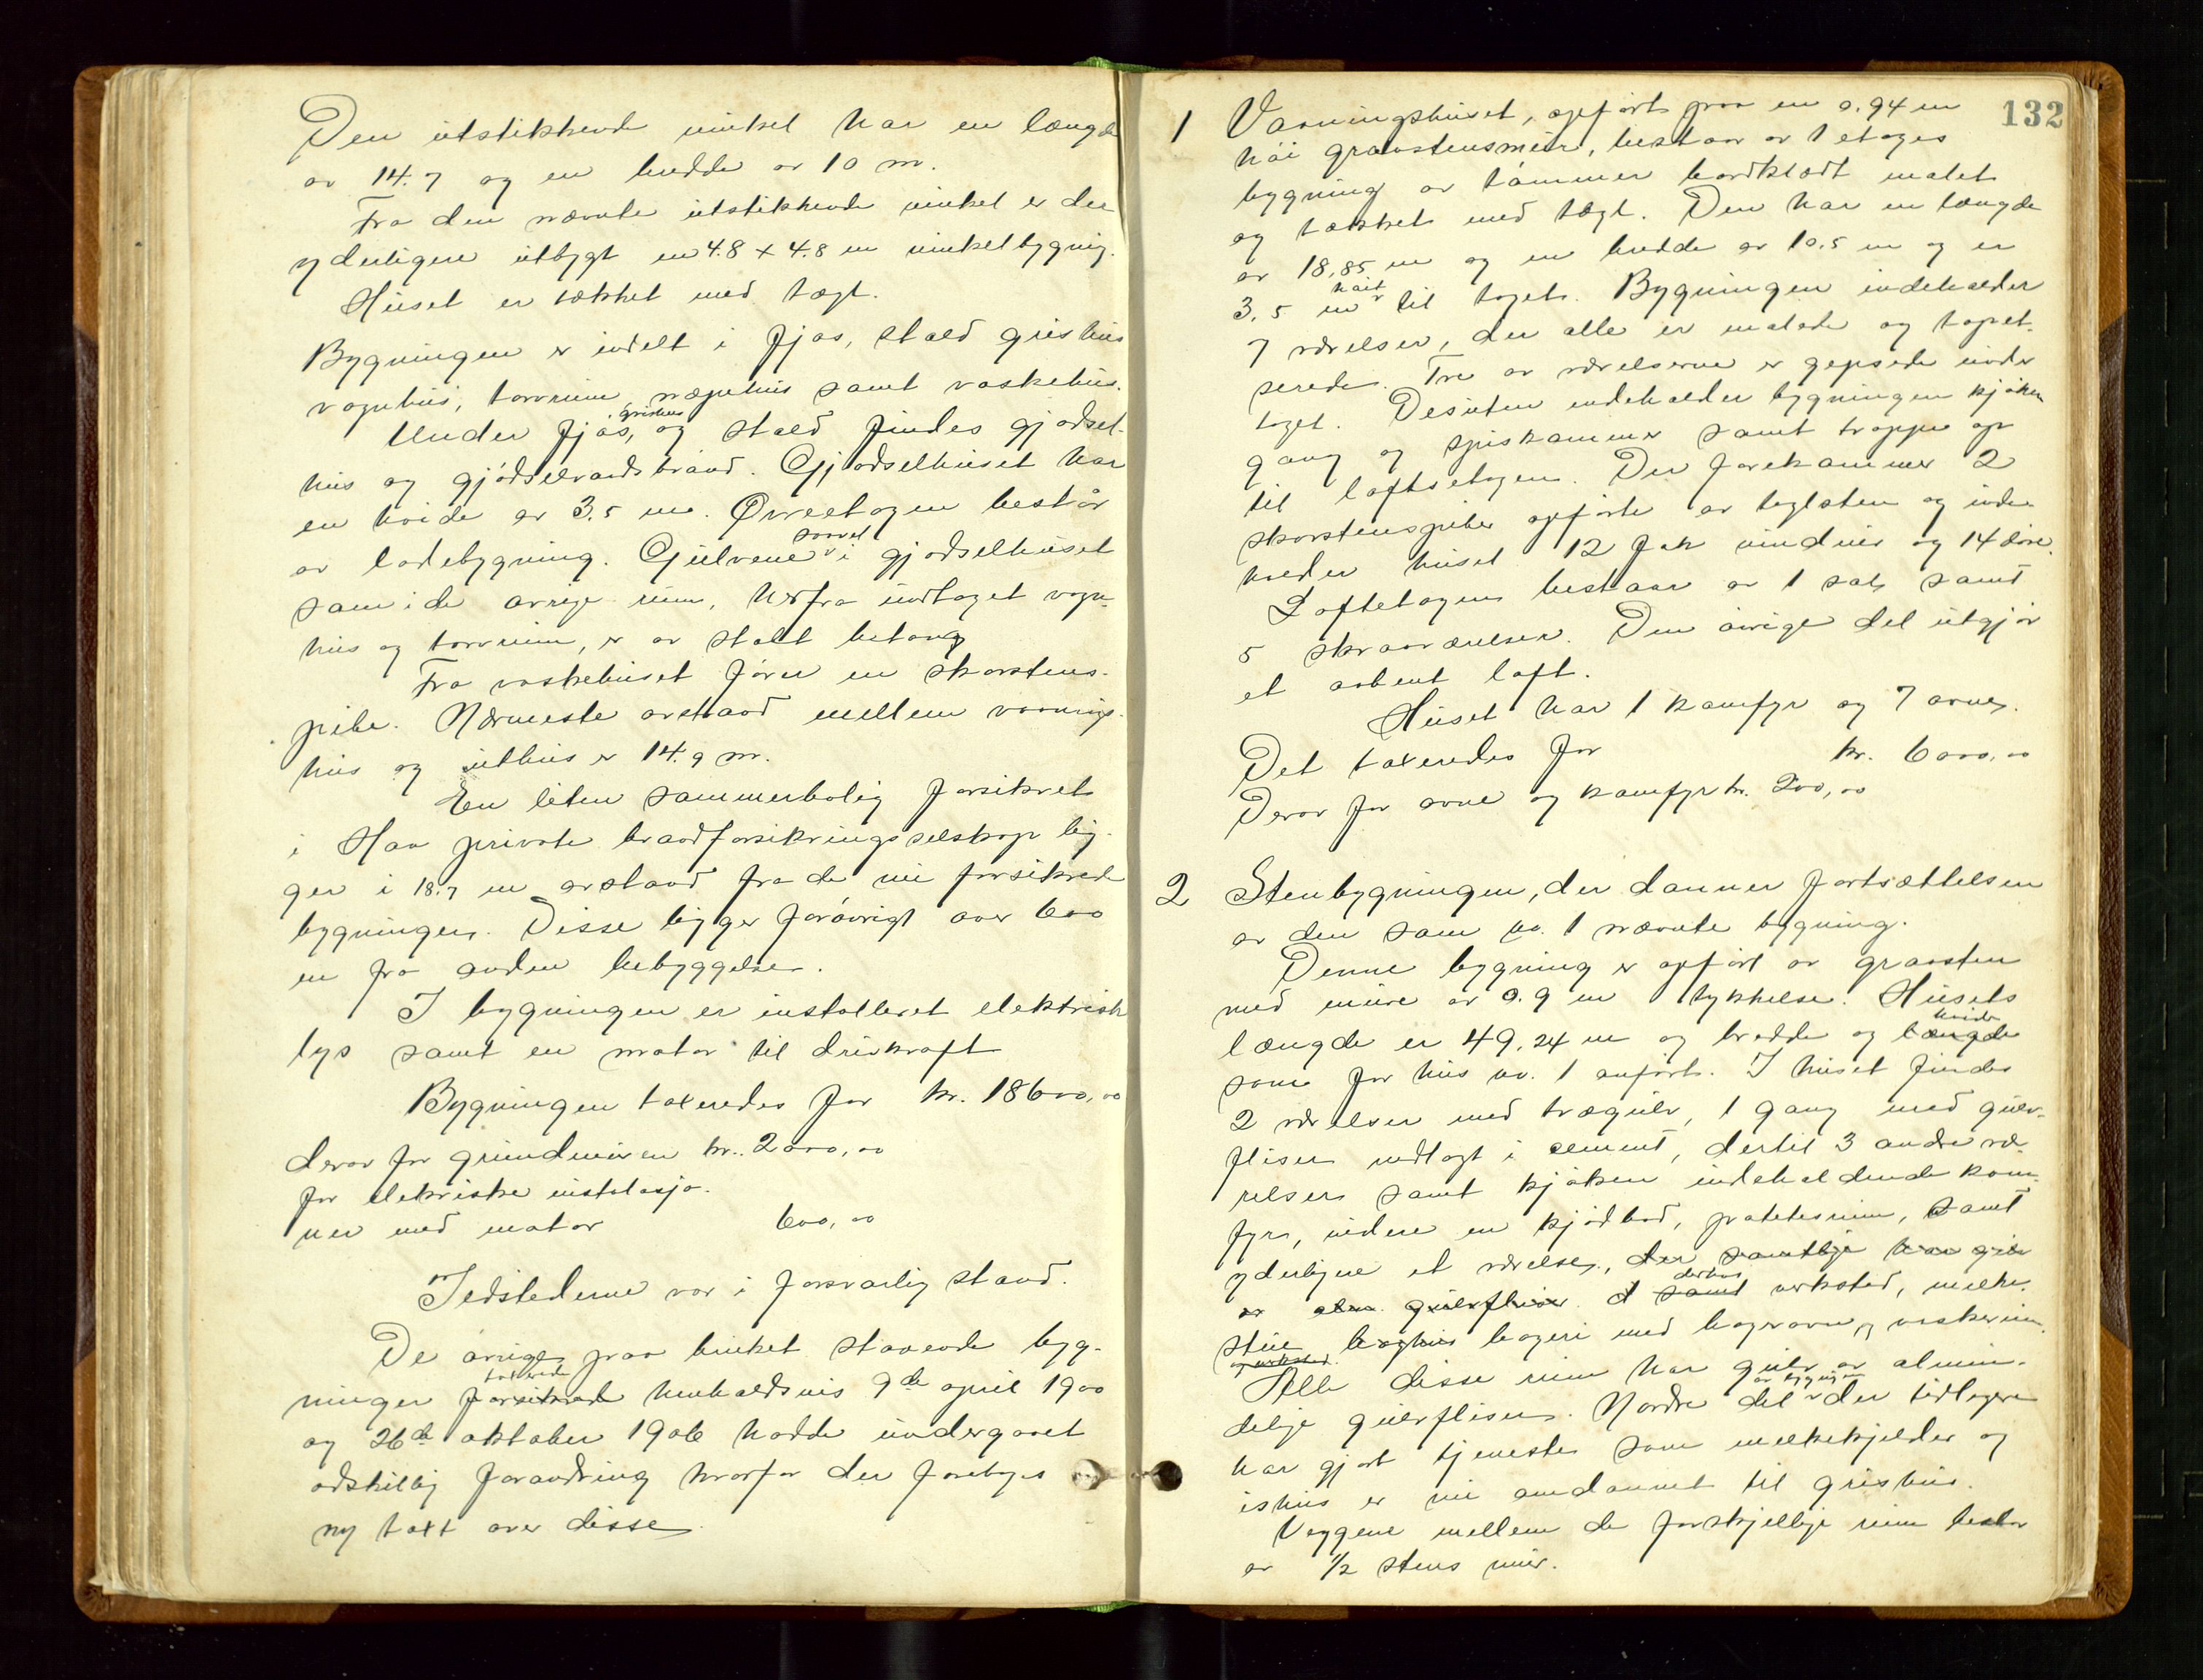 Den utstikkende vinkel har en længde
av 14.7 og en bredde av 10 m.
Fra den nævnte utstikkende vinkel er der
yderligere utbygt en 4.8 x 4.8 m vinkelbygnig.
Huset er tækket med tægl.
Bygningen er indelt i fjøs, stald grishus
vognhus, torvrum, næpehus samt vaskehus.
Under fjøs, grishus og stald findes gjødsel-
hus og gjødselvandsbrønd. Gjødselhuset har
en høide av 3.5 m. Øvreetagen består
av ladebygning. Gulvene saavel i gjødselhuset
som i de øvrige rum, herfra undtaget vogn-
hus og torvrum, er av støbt betong
Fra vaskehuset fører en skorstens-
pibe. Nærmeste avstand mellem vaanings-
hus og uthus er 14.9 m.
En liten sommerbolig forsikret
i Haa private brandforsikringsselskap lig-
ger i 18.7 m avstand fra de nu forsikrede
bygninger. Disse ligger forøvrigt over 600
m fra anden bebyggelse.
I bygningen er installeret elektrisk
lys samt en motor til drivkraft
Bygningen taxeredes for kr. 18600,00
derav for grundmuren kr. 2000,00
for elekriske instalasjo-
ner med motor 600,00
Ildstederne var i forsvarlig stand.
De øvrige paa bruket staaende byg-
ninger forsikred taxerede henholdsvis 9de april 1900
og 26de oktober 1906 hadde undergaaet
adskillig forandring hvorfor der foretoges
ny taxt over disse
132
1 Vaaningshuset, opført paa en 0.94 m
høi graastensmur, bestaar av 1 etages
bygning av tømmer bordklædt malet
og tækket med tægl. Den har en længde
av 18,85 m og en bredde av 10.5 m og er
3,5 m høit til taget. Bygningen indeholder
7 værelser, der alle er malede og tapet-
serede. Tre av værelserne er gepsede under
taget. Desuten indeholder bygningen kjøken
gang og spiskammer samt trappe op
til loftsetagen. Der forekommer 2
skorstenspiber opførte av teglsten og inde-
holder huset 12 fak vinduer og 14 døre.
Loftetagen bestaar av 1 sal samt
5 skraaværelser. Den øvrige del utgjør
et aabent loft.
Huset har 1 komfyr og 7 ovne.
Det taxeredes for kr. 6000,00
Derav for ovne og komfyr kr. 200,00
2 Stenbygningen, der danner fortsættelsen
av den som no. 1 nævnte bygning.
Denne bygning er opført av graasten
med mure av 0.9 m tykkelse. Husets
længde er 49,24 m og bredde og længde høide
som for hus no. 1 anført. I huset findes
2 værelser med trægulv, 1 gang med gulv-
fliser nedlagt i cement, dertil 3 andre væ-
relser samt kjøken indeholdende kom-
fyr, videre en kjødbod, potetesrum, samt
yderligere et værelse, der samtlige har gulv
av alm. gulvfliser. d samt desuten verksted, melke-
stue bryghus bageri med bagerovn og vaskerum
og verksted. Alle disse rum har gulv av almin-
delige gulvfliser. Nordre del av bygningen der tidligere
har gjort tjeneste som melkekjelder og
ishus er nu omdannet til grishus.
Væggene mellem de forskjellige rum bestaar
av 1/2 stens mur.